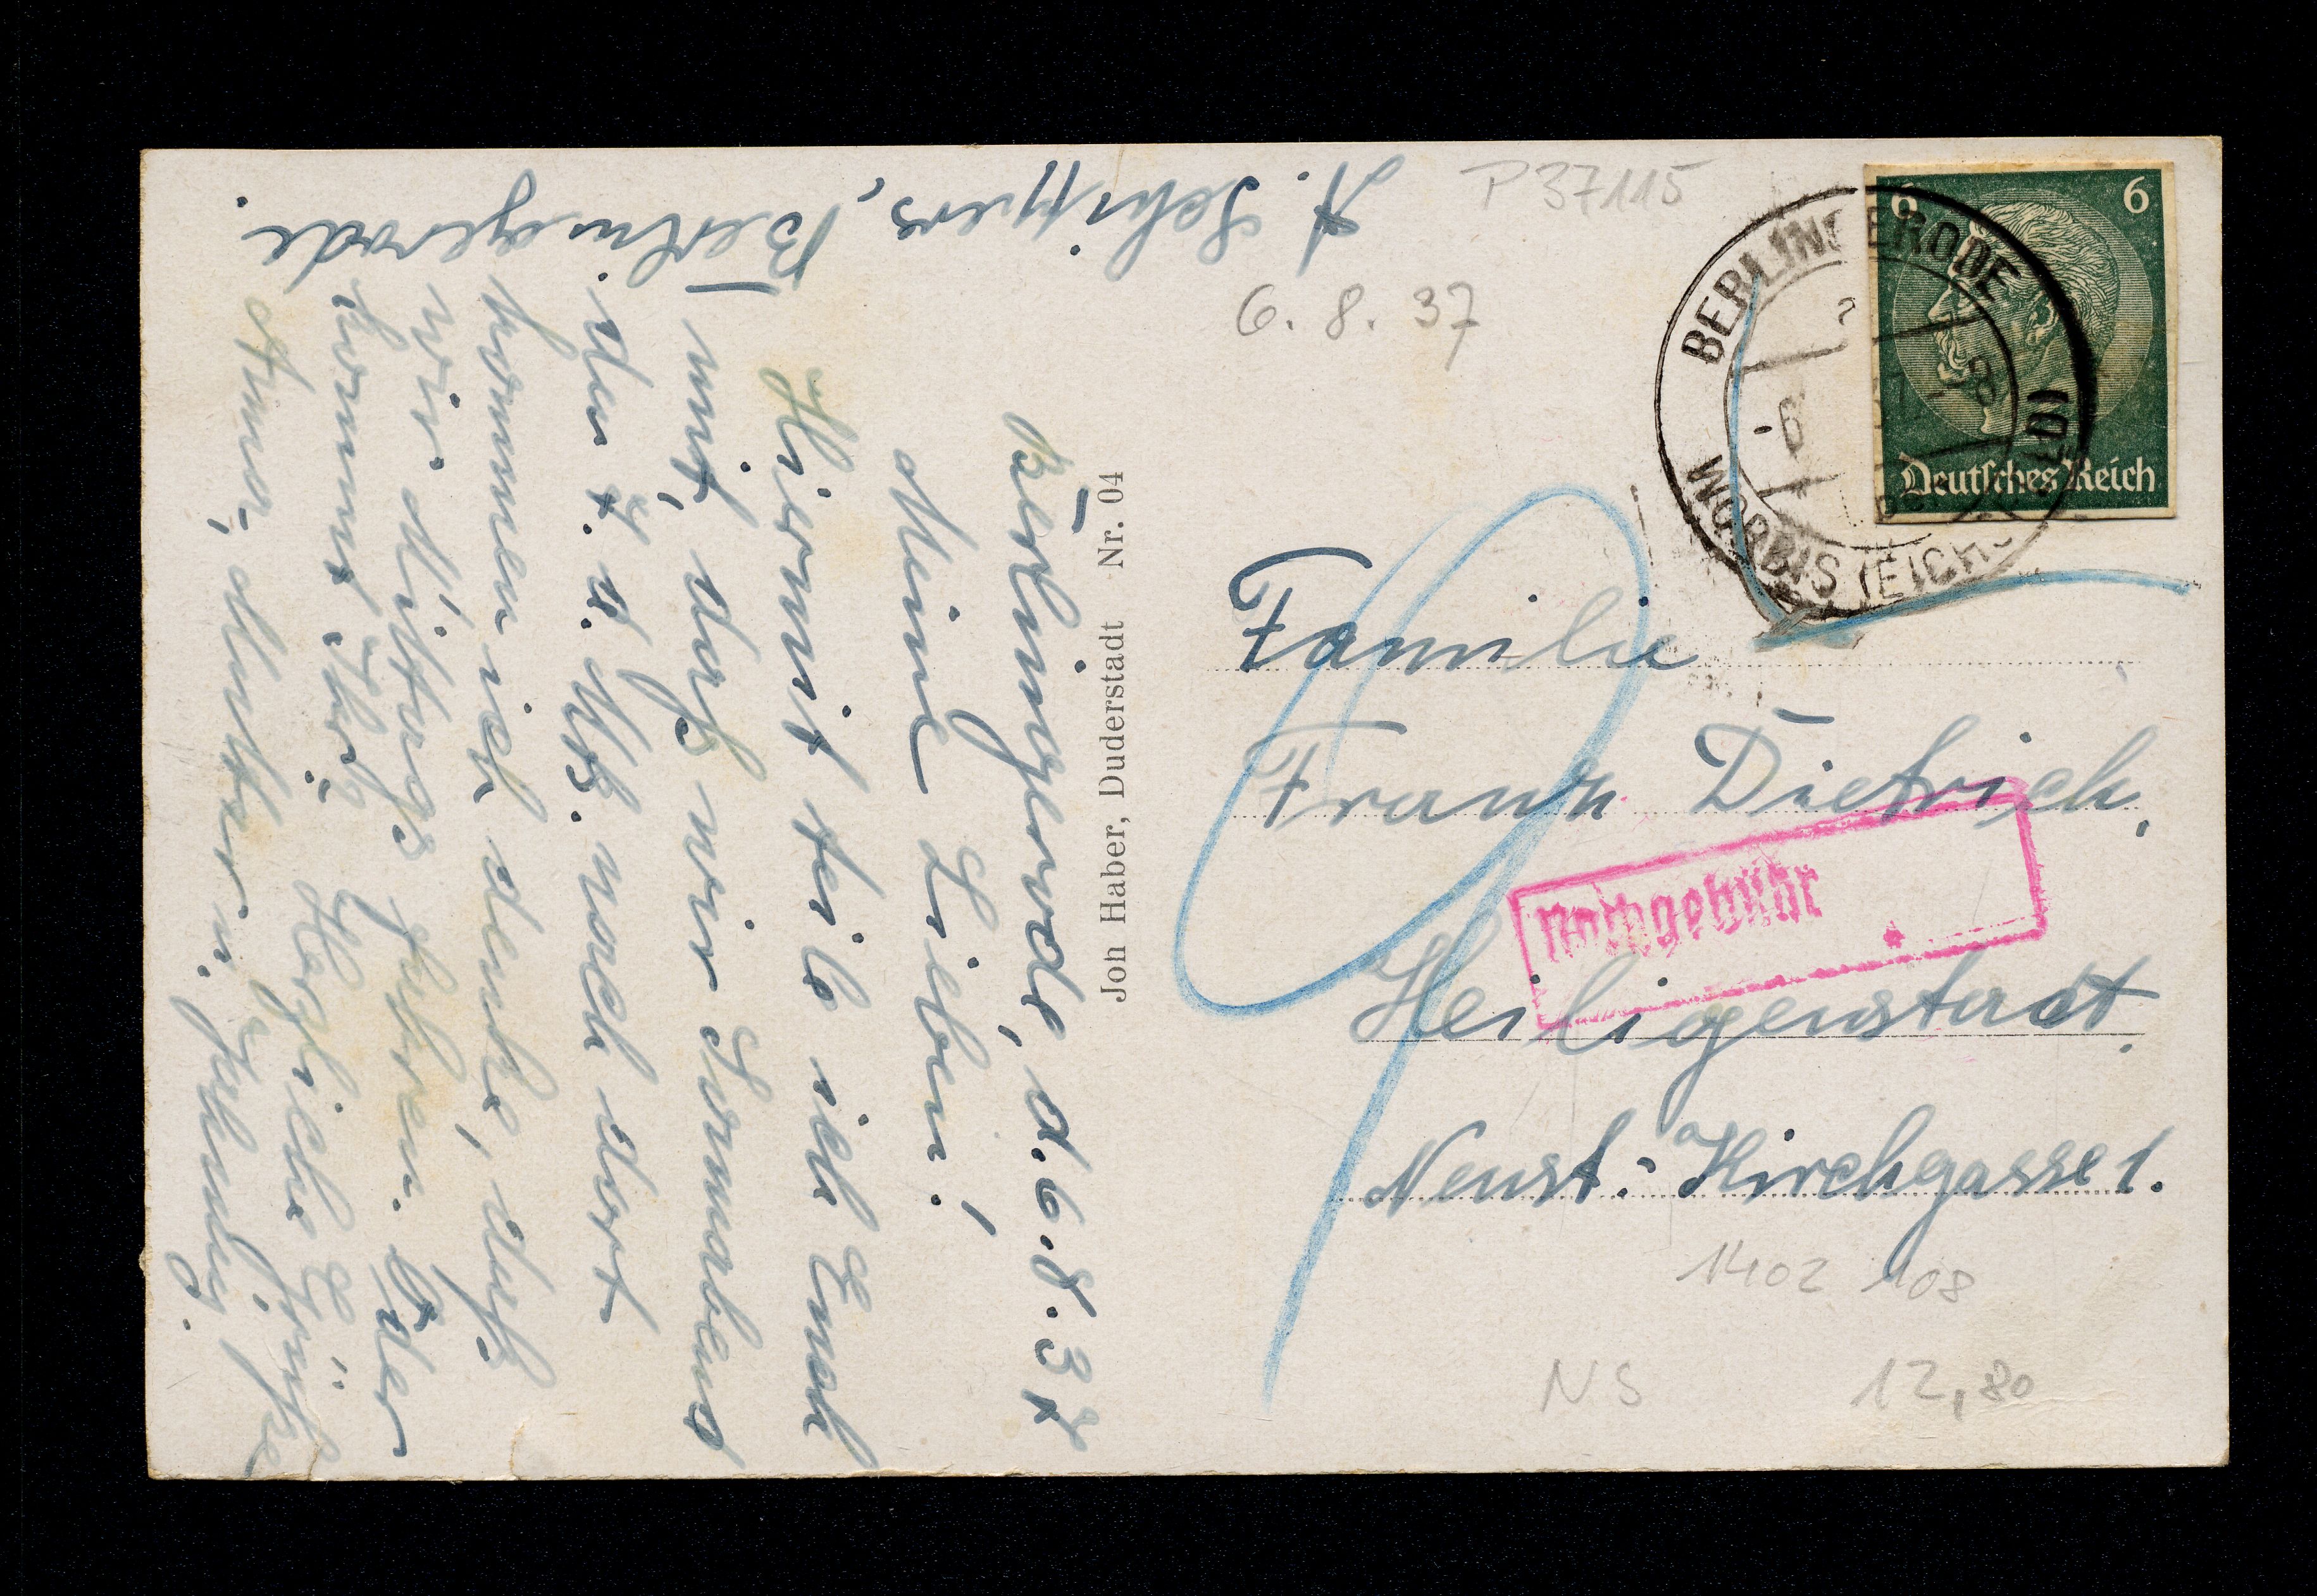 A. Schippers, Berlingerode.
Berlingerode, d. 6.8.37
Meine Lieben!
Hiermit teile ich Euch
mit, daß wir Sonnabend
den 7. d. Mts. noch dort
kommen ich denke, daß
wir Mittags fahren. Oder
kommt Ihr? Herzliche Grüße
Anna, Mutter u.
Joh Haber, Duderstadt Nr. 04
P 37115
6. 8. 37
6 6
Deutsches Reich
BERLINGERODE
WORBIS (EICHSFELD)
-6
Familie
Franz Dietrich,
Nachgebühr
Heiligenstadt.
Neust: Kirchgasse 1.
9
1402 108
NS 12,80